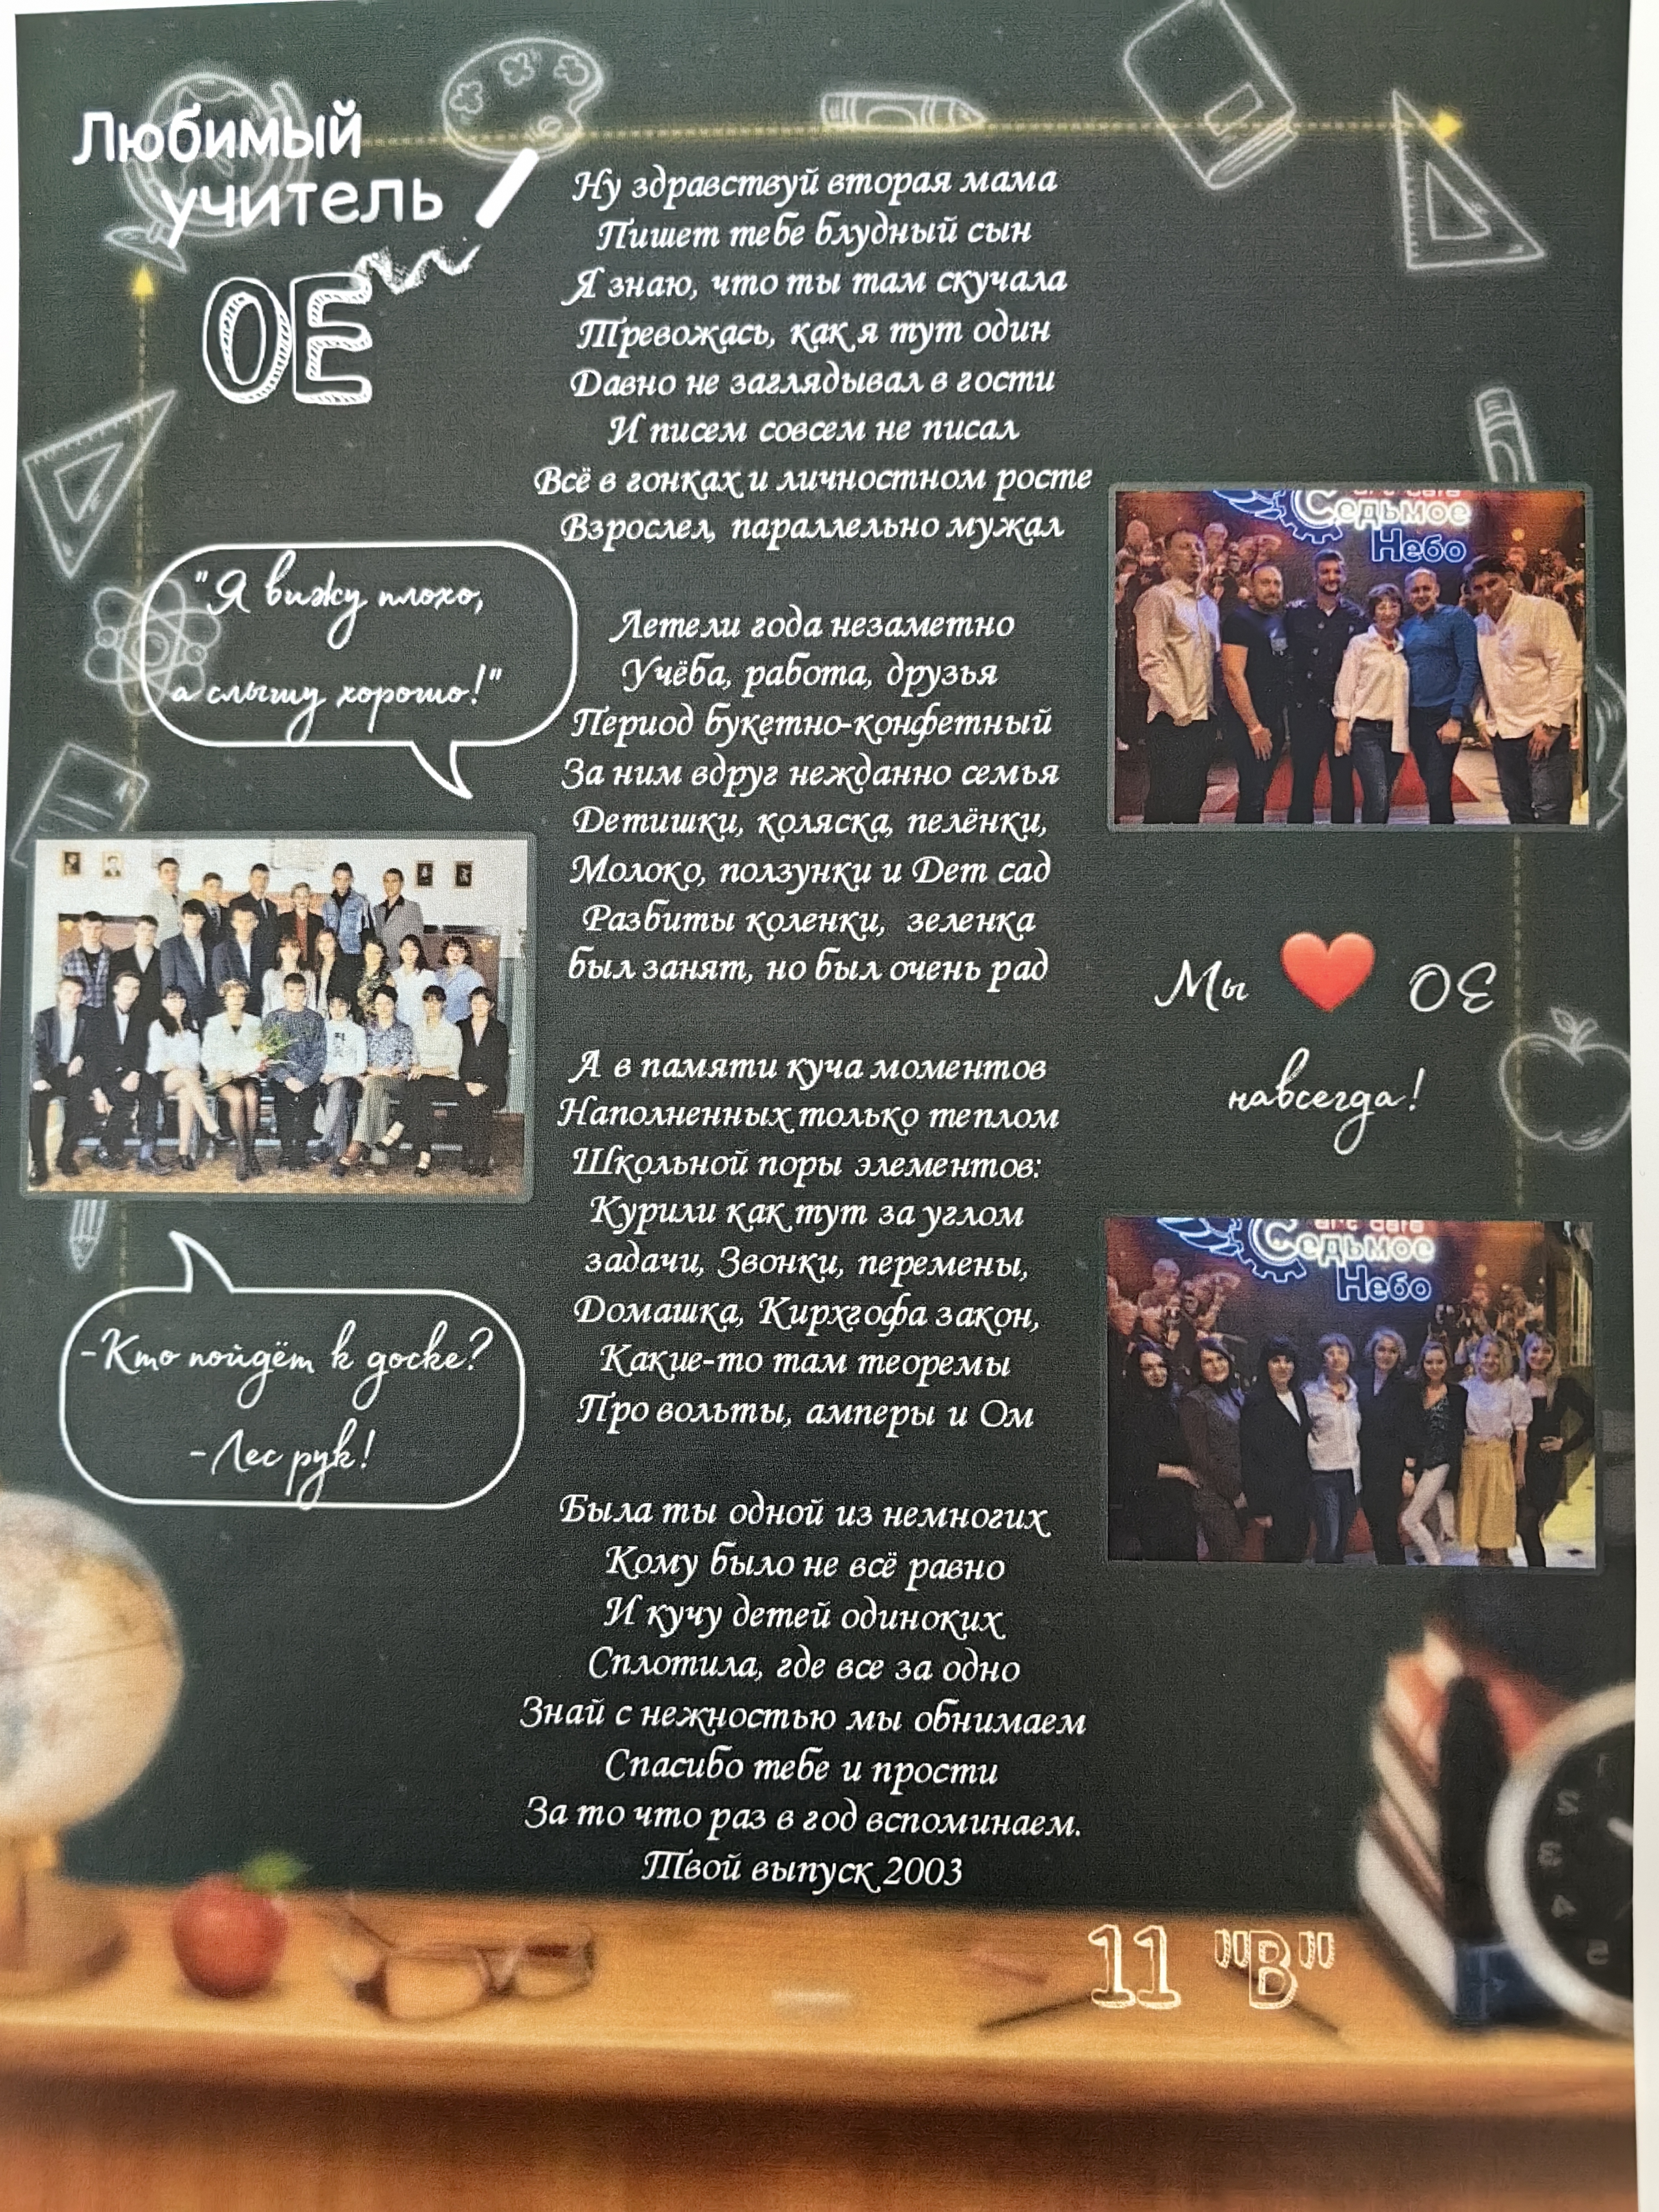 Любимый
учитель
ОЕ
Ну здравствуй вторая мама
Пишет тебе блудный сын
Я знаю, что ты там скучала
Тревожась, как я тут один
Давно не заглядывал в гости
И писем совсем не писал
Всё в гонках и личностном росте
Взрослел, параллельно мужал
Летели года незаметно
Учёба, работа, друзья
Период букетно-конфетный
За ним вдруг нежданно семья
Детишки, коляска, пелёнки,
Молоко, ползунки и Дет сад
Разбиты коленки, зеленка
был занят, но был очень рад
А в памяти куча моментов
Наполненных только теплом
Школьной поры элементов:
Курили как тут за углом
задачи, Звонки, перемены,
Домашка, Кирхгофа закон,
Какие-то там теоремы
Про вольты, амперы и Ом
Была ты одной из немногих
Кому было не всё равно
И кучу детей одиноких
Сплотила, где все за одно
Знай с нежностью мы обнимаем
Спасибо тебе и прости
За то что раз в год вспоминаем.
Твой выпуск 2003
"Я вижу плохо,
а слышу хорошо!"
-Кто пойдёт к доске?
-Лес рук!
Седьмое
Небо
Мы ❤️ ОЕ
навсегда!
Седьмое
Небо
11 "В"
2
3
4
5